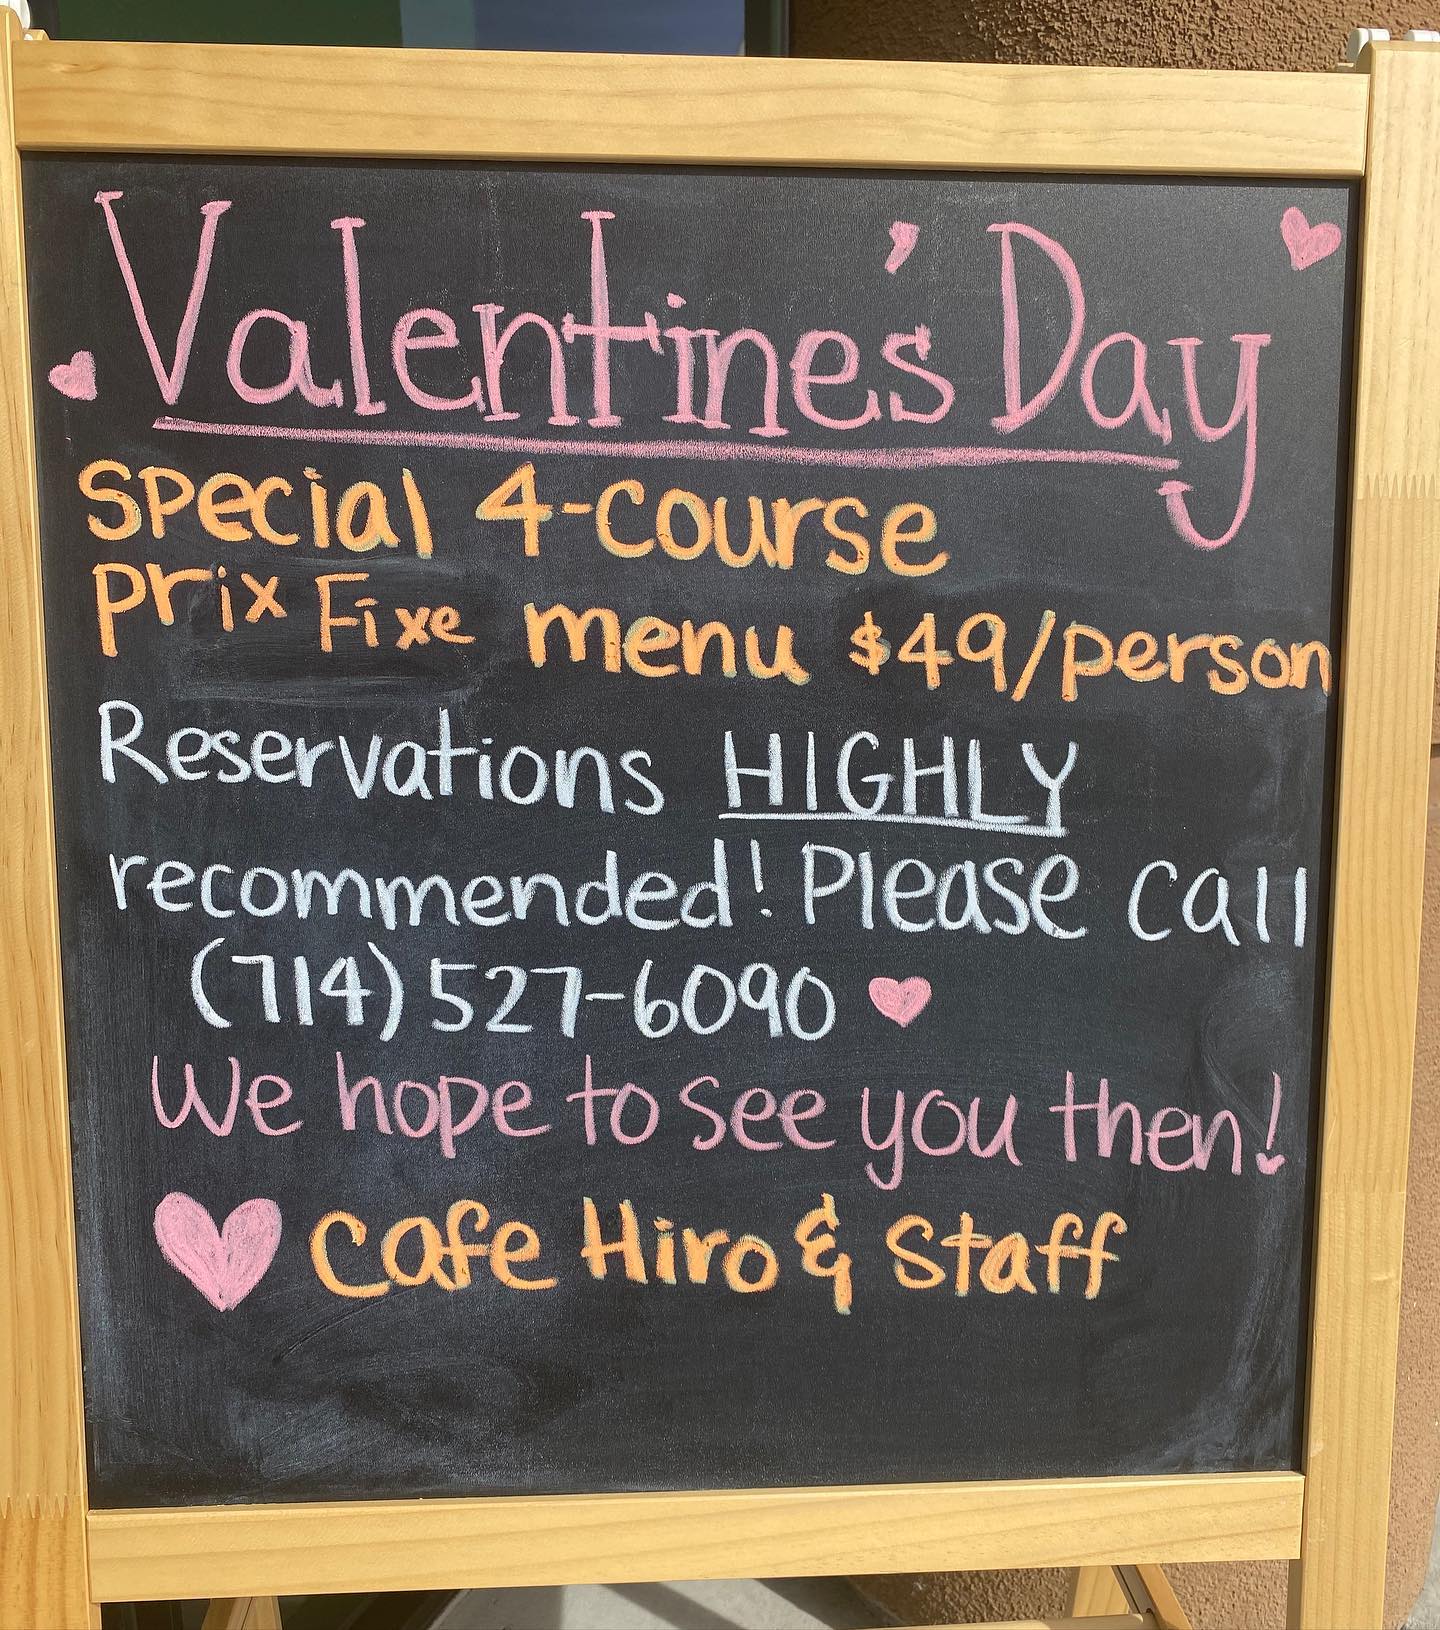 Valentine's Day
Special 4-course
prix Fixe menu $49/person
Reservations HIGHLY
recommended! Please call
(714)527-6090
We hope to see you then!
Cafe Hiro & Staff